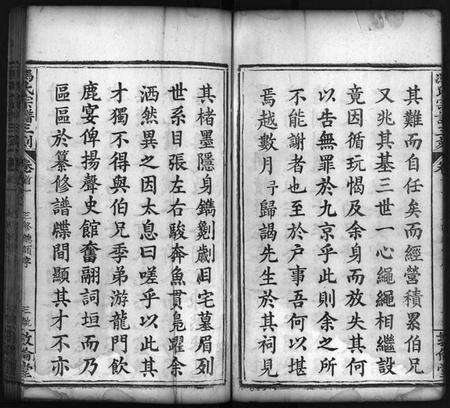 其難而自任矣而經營積累伯兄
又兆其基三世一心繩繩相繼設
竟因循玩愒及余身而放失其何
以告無罪於九京乎此則余之所
不能謝者也至於戶事吾何以堪
焉越數月予歸謁先生於其祠見
其楮墨隱身鐫劂歲目宅墓眉列
世系目張左右駿奔魚貫鳧躍余
洒然異之因太息曰嗟乎以此其
才獨不得與伯兄季弟游龍門飲
鹿宴俾揚聲史館奮翮詞垣而乃
區區於纂修譜牒間顯其才不亦
馮氏宗譜三刻
卷首
三修譜牒序
敦倫堂